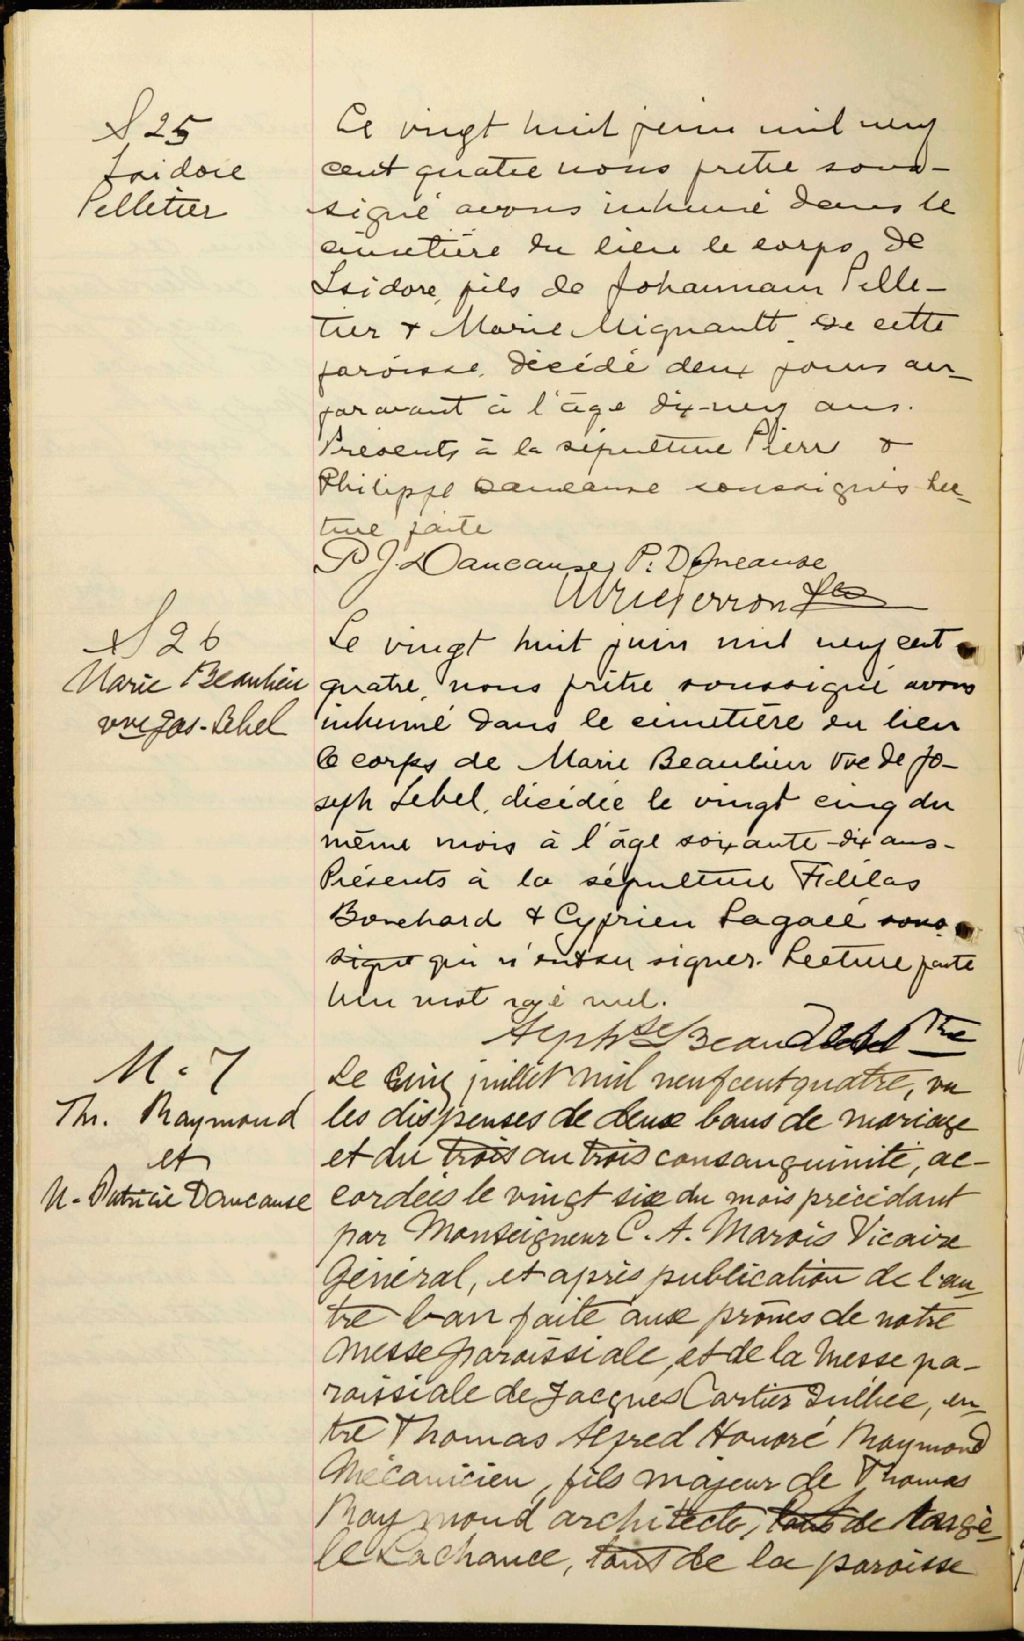 S 25
Isidore
Pelletier
Le vingt huit juin mil neuf
cent quatre nous prêtre sous-
signé avons inhumé dans le
cimetière du lieu le corps de
Isidore, fils de Johannain Pelle-
tier & Marie Mignault de cette
paroisse, décédé deux jours au-
paravant à l'âge dix-neuf ans.
Présents à la sépulture Pierre &
Philippe Dancause soussignés lec-
ture faite
P J. Dancause, P. Dancause
S 26
Marie Beaulieu
vve Jos. Lebel
Le vingt huit juin mil neuf cent
quatre, nous prêtre soussigné avons
inhumé dans le cimetière du lieu
le corps de Marie Beaulieu vve de Jo-
seph Lebel, décédée le vingt cinq du
même mois à l'âge soixante-dix ans-
Présents à la sépulture Fidélas
Bouchard & Cyprien Lagacé sous-
signé qui n'ont su signer. Lecture faite
Un mot rayé nul.
Ptre
M. 7
Th. Raymond
et
M. Patricie Dancause
Le cinq juillet mil neuf cent quatre, vu
les dispenses de deux bans de mariage
et du trois au trois consanguinité, ac-
cordées le vingt six du mois précédant
par Monseigneur C. A. Marois Vicaire
Général, et après publication de l'au-
tre ban faite aux prônes de notre
Messe paroissiale, et de la Messe pa-
roissiale de Jacques Cartier Québec, en-
tre Thomas Alfred Honoré Raymond
Mécanicien, fils majeur de Thomas
Raymond architecte, tous de
le Lachance, tous de la paroisse